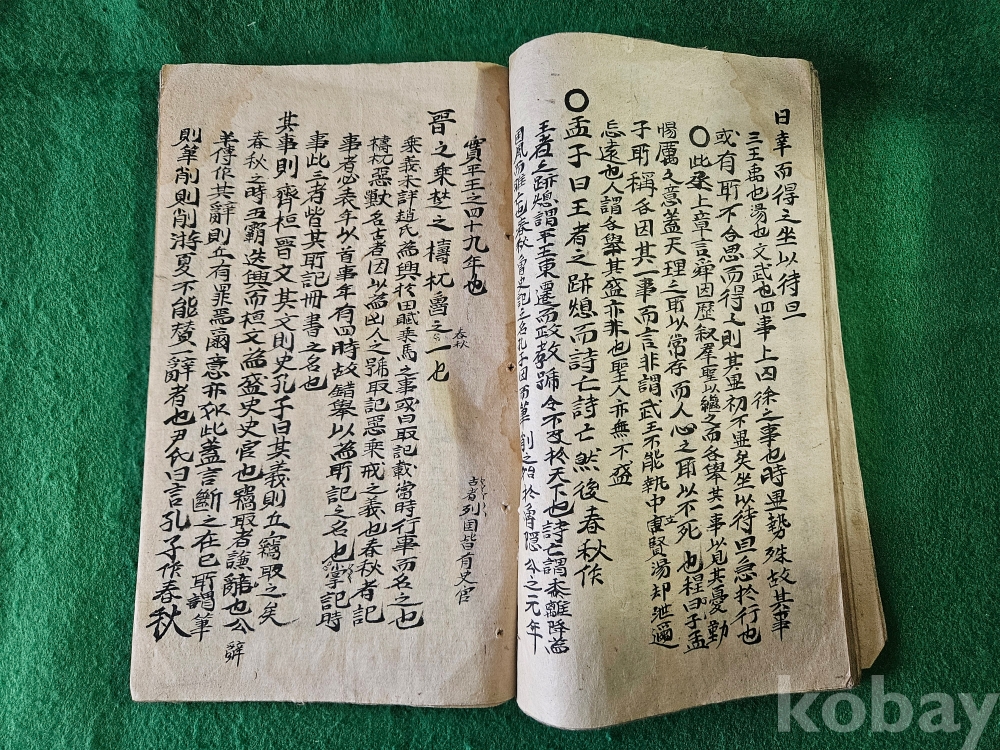 日幸而得之坐以待旦
三王禹也湯也文武也四事上四條之事也時異勢殊故其事
或有所不合思而得之則其理初不異矣坐以待旦急於行也
○此承上章言舜因歷叙羣聖以繼之而各舉其一事以見其憂勤
惕厲之意盖天理之所以常存而人心之所以不死也程子曰孟
子所稱各因其一事而言非謂武王不能執中立賢湯却泄邇
忘遠也人謂各舉其盛亦非也聖人亦無不盛
○孟子曰王者之跡熄而詩亡詩亡然後春秋作
王者之跡熄謂平王東遷而政敎號令不及於天下也詩亡謂黍離降爲
國風而雅亡也春秋魯史記之名孔子因而筆削之始於魯隱公之元年
實平王之四十九年也
晉之乘楚之檮杌魯之春秋一也
古者列国皆有史官
乘義未詳趙氏爲興於田賦乘馬之事或曰取記載當時行事而名之也
檮杌惡獸名古者因以爲凶人之號取記惡垂戒之義也春秋者記
事者必表年以首事年有四時故錯擧以爲所記之名也掌記時
事此三者皆其所記冊書之名也
其事則齊桓晉文其文則史孔子曰其義則丘竊取之矣
春秋之時五霸迭興而桓文爲盛史史官也竊取者謙辭也公
羊傳作其辭則丘有罪焉爾意亦如此蓋言斷之在己所謂筆
則筆削則削游夏不能贊一辭者也尹氏曰言孔子作春秋
辭